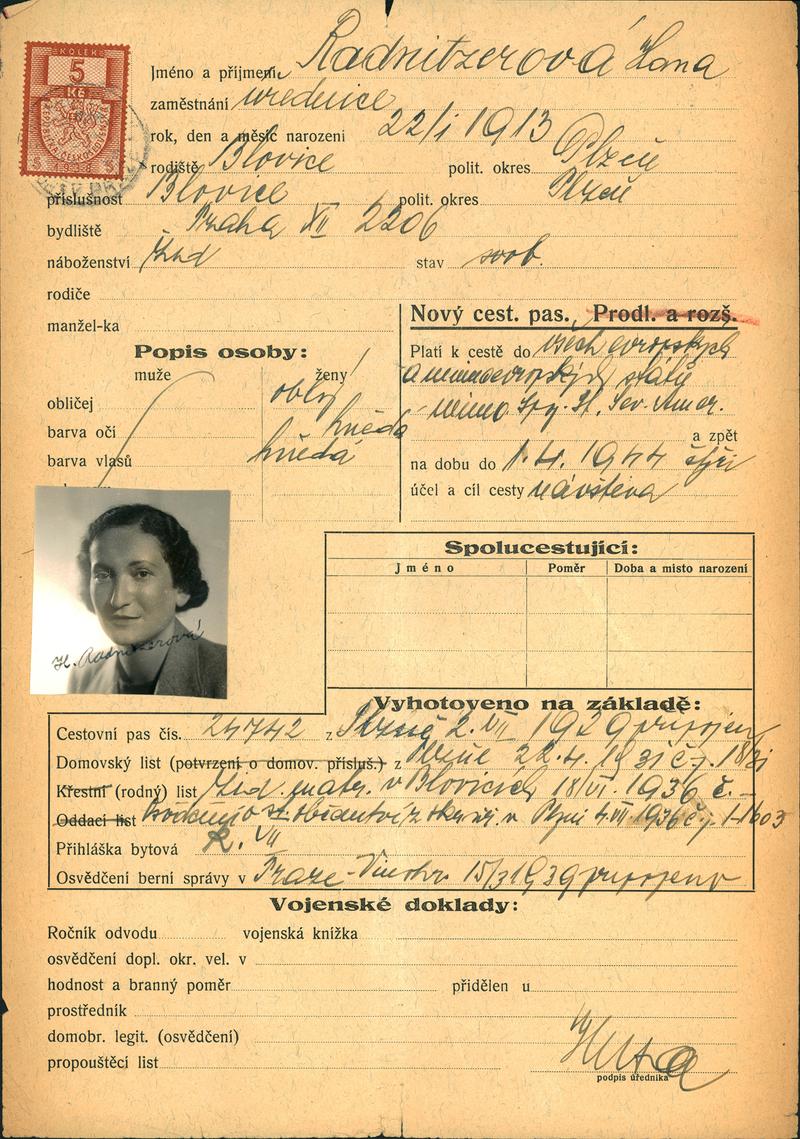 KOLEK
5
Kč
REPUBLIKA ČESKOSLOVENSKÁ
5 1938 5
Jméno a příjmení Radnitzerová Hana
zaměstnání úřednice
rok, den a měsíc narození 22/I 1913
rodiště Blovice polit. okres Plzeň
příslušnost Blovice polit. okres Plzeň
bydliště Praha XII 2206
náboženství žid stav svob.
rodiče
manžel-ka
Nový cest. pas., Prodl. a rozš.
Platí k cestě do všech evropských
a mimoevropských států
mimo Sev. Amer.
a zpět
na dobu do 1.4. 1944 čtyři
účel a cíl cesty návštěva
Popis osoby:
muže ženy
obličej oblý
barva očí hnědá
barva vlasů hnědá
H. Radnitzerová
Spolucestující:
Jméno Poměr Doba a misto narození
Vyhotoveno na základě:
Cestovní pas čís. 24742 z Plzně 2. VII 1929 připojen
Domovský list (potvrzení o domov. přísluš.) z Plzně 22.4. 1931 č.j.
Křestní (rodný) list Žid. matr. v Blovicích 18/VI. 1936 č. –
Oddací list Osvědčení o st. občanství z okr. úř. v Plzni 4. VII. 1936 č.j. 1-1603
Přihláška bytová R. VII
Osvědčení berní správy v Praze-Vinohr 15/3 1939 připojeno
Vojenské doklady:
Ročník odvodu vojenská knížka
osvědčení dopl. okr. vel. v
hodnost a branný poměr přidělen u
prostředník
domobr. legit. (osvědčení)
propouštěcí list
podpis úředníka